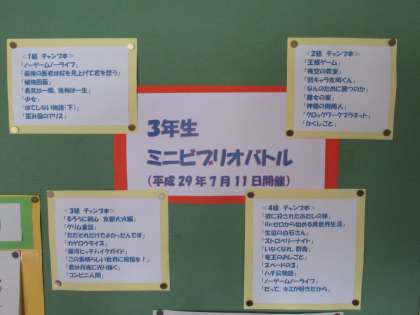 <1組 チャンプ本>
「ノーゲームノーライフ」
「最後の医者は桜を見上げて君を想う」
「植物図鑑」
「勇気は一瞬、後悔は一生」
「少女」
「はてしない物語(下)」
「歪み国のアリス」
<2組 チャンプ本>
「王様ゲーム」
「夜空の教室」
「なんのために勝つのか」
「魔女の家」
「神様の御用人」
「クロックワークプラネット」
「かくしごと」
3年生
ミニビブリオバトル
(平成29年7月11日開催)
<3組 チャンプ本>
「るろうに剣心 京都大火編」
「グリム童話」
「ただそれだけでよかったんです」
「カゲロウデイズ」
「銀河ヒッチハイクガイド」
「この素晴らしい世界に祝福を!」
「君は月夜に光り輝く」
「コンビニ人間」
<4組 チャンプ本>
「歌に殺されたあたしの体」
「Re:ゼロから始める異世界生活」
「生協の白石さん」
「ストロベリーナイト」
「いなくなれ、群青」
「竜王のおしごと」
「スペードの3」
「ハチ公物語」
「ノーゲームノーライフ」
「だって、キミが好きだから」